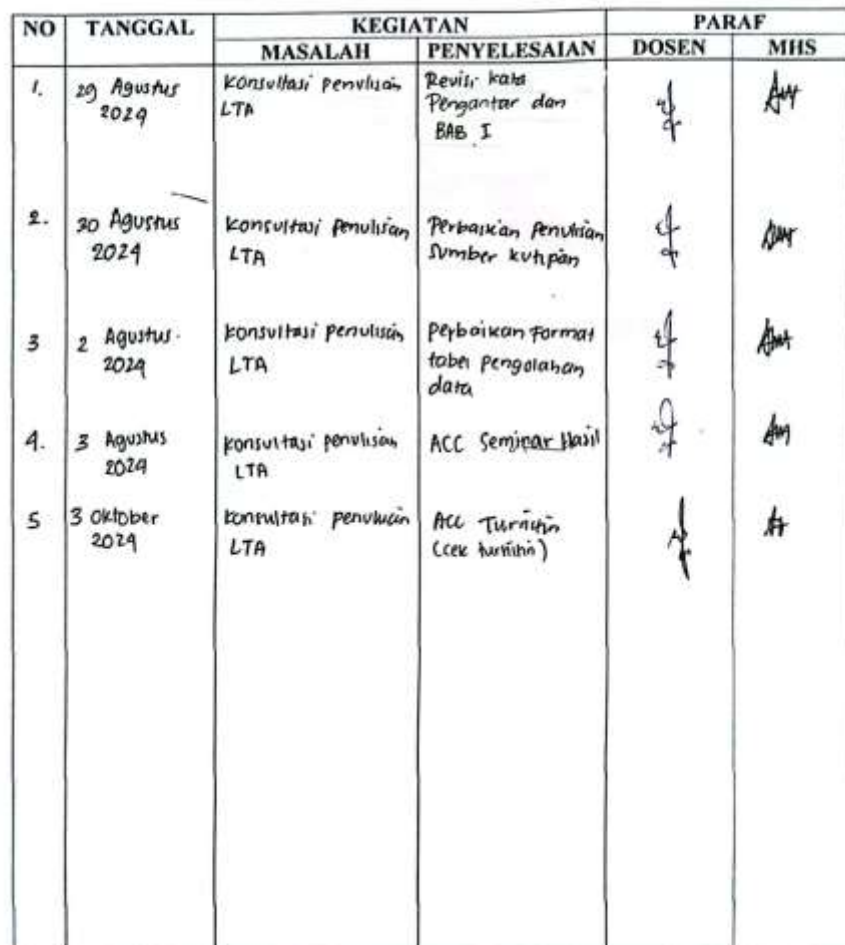 NO TANGGAL KEGIATAN PARAF
MASALAH PENYELESAIAN DOSEN MHS
1. 29 Agustus Konsultasi penulisan Revisi kata
2024 LTA Pengantar dan
BAB I
2. 30 Agustus Konsultasi penulisan Perbaikan penulisan
2024 LTA Sumber kutipan
3 2 Agustus Konsultasi penulisan Perbaikan Format
2024 LTA tabel pengolahan
data
4. 3 Agustus Konsultasi penulisan ACC Seminar Hasil
2024 LTA
5 3 Oktober Konsultasi penulisan ACC Turnitin
2024 LTA (cek turnitin)